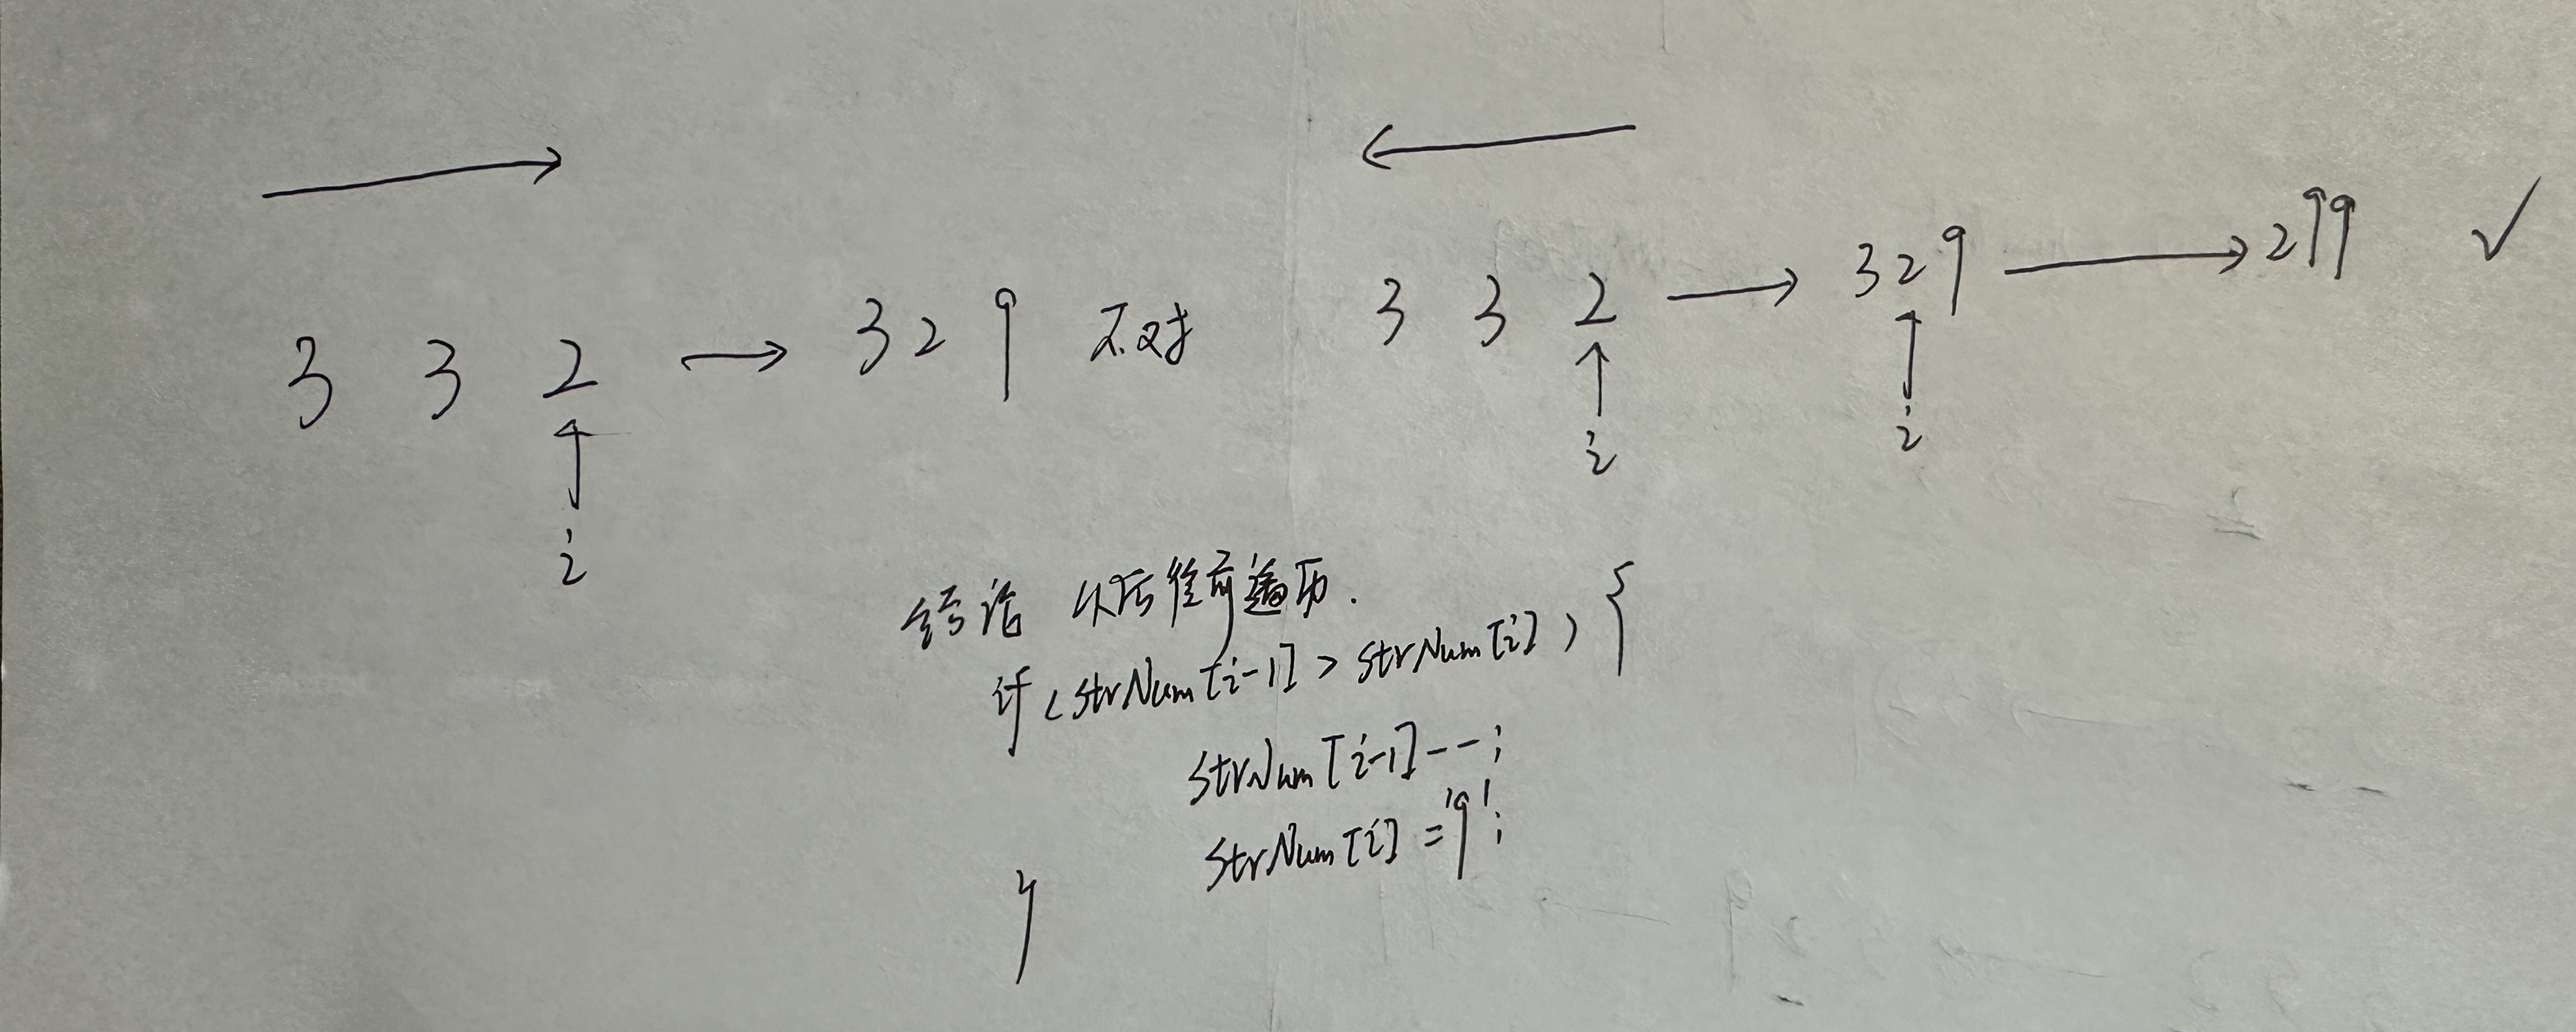 3 3 2 → 329 不对
i
3 3 2 → 329 → 299 ✓
i i
结论 从后往前遍历.
if (strNum[i-1] > strNum[i]) {
strNum[i-1]--;
strNum[i] = '9';
}